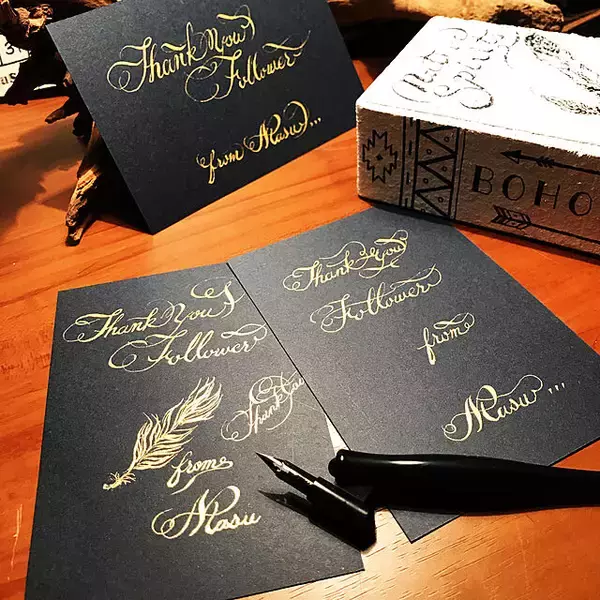 Thank You
Follower
from Masu...
BOHO
Thank You
Follower
from
Masu...
Thank You
Follower
Thank You
from
Masu